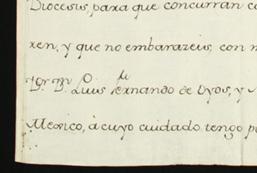 Diocesis, para que concurran
xen, y que no embarazeis, con
Luis Fernando de Oyos, y
Mexico, à cuyo cuidado tengo